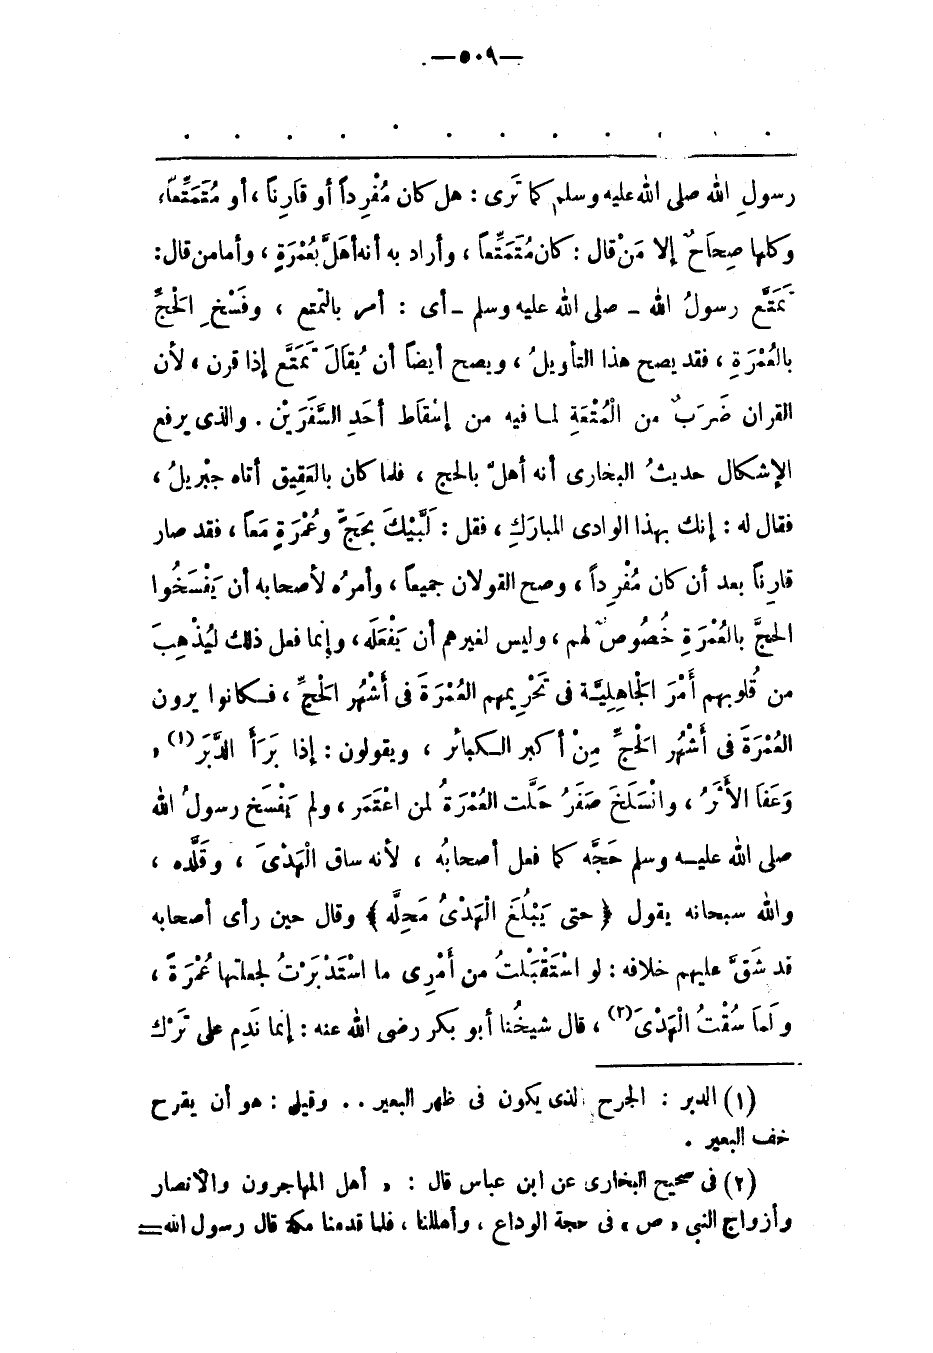 —٥٠٩—
. . . . . . . . . . . .
رسولِ الله صلى الله عليه وسلم كما تَرى : هل كان مُفْرِداً أو قارِناً ، أو مُتَمَتِّعاً،
وكلها صِحَاحٌ إلا مَنْ قال : كان مُتَمَتِّعاً ، وأراد به أنه أهَلَّ بعُمْرَةٍ ، وأما من قال:
تَمَتَّع رسولُ الله ـ صلى الله عليه وسلم ـ أى : أمر بالتمتع ، وفَسْخِ الْحَجِّ
بالعُمْرَةِ ، فقد يصح هذا التأويلُ ، ويصح أيضاً أن يُقالَ تَمَتَّع إذا قرن ، لأن
القران ضَرَبٌ من الْمُتْعَةِ لما فيه من إسْقاط أحَدِ السَّفَرَيْن . والذى يرفع
الإشكال حديثُ البخارى أنه أهلَّ بالحج ، فلما كان بالعَقِيق أتاه جبْريلُ ،
فقال له : إنك بهذا الوادى المبارَكِ ، فقل : لَبَّيْكَ بحَجٍّ وعُمْرَةٍ مَعاً ، فقد صار
قارِناً بعد أن كان مُفْرِداً ، وصح القولان جميعاً ، وأمرُه لأصحابه أن يَفْسَخُوا
الحجَّ بالعُمْرَةِ خُصُوصٌ لهم ، وليس لغيرهم أن يَفْعَلَه ، وإنما فعل ذلك ليُذْهِبَ
من قُلوبهم أَمْرَ الْجَاهِلِيَّة فى تَحْرِيمهم العُمْرَةَ فى أَشْهُر الْحَجِّ ، فكانوا يرون
العُمْرَةَ فى أَشْهُرِ الْحَجِّ مِنْ أكبر الكبائر ، ويقولون : إذا بَرَأَ الدَّبَر(١) ،
وَعَفَا الأَثَرُ ، وانْسَلَخَ صَفَرُ حَلَّت العُمْرَةُ لمن اعْتَمَر ، ولم يَفْسَخ رسولُ الله
صلى الله عليه وسلم حَجَّه كما فعل أصحابُه ، لأنه ساق الْهَدْىَ ، وقَلَّده ،
والله سبحانه يقول ﴿ حتى يَبْلُغَ الْهَدْىُ مَحِلَّه ﴾ وقال حين رأى أصحابه
قد شَقَّ عليهم خلافه : لو اسْتَقْبَلْتُ من أَمْرِى ما اسْتَدْبَرْتُ لجعلتها عُمْرَةً ،
ولَمَا سُقْتُ الْهَدْىَ(٢) ، قال شيخُنا أبو بكر رضى الله عنه : إنما نَدِم على تَرْك
(١) الدبر : الجرح الذى يكون فى ظهر البعير . . وقيل : هو أن يقرح
خف البعير .
(٢) فى صحيح البخارى عن ابن عباس قال : « أهل المهاجرون والأنصار
وأزواج النبى « ص » فى حجة الوداع ، وأهللنا ، فلما قدمنا مكة قال رسول الله=